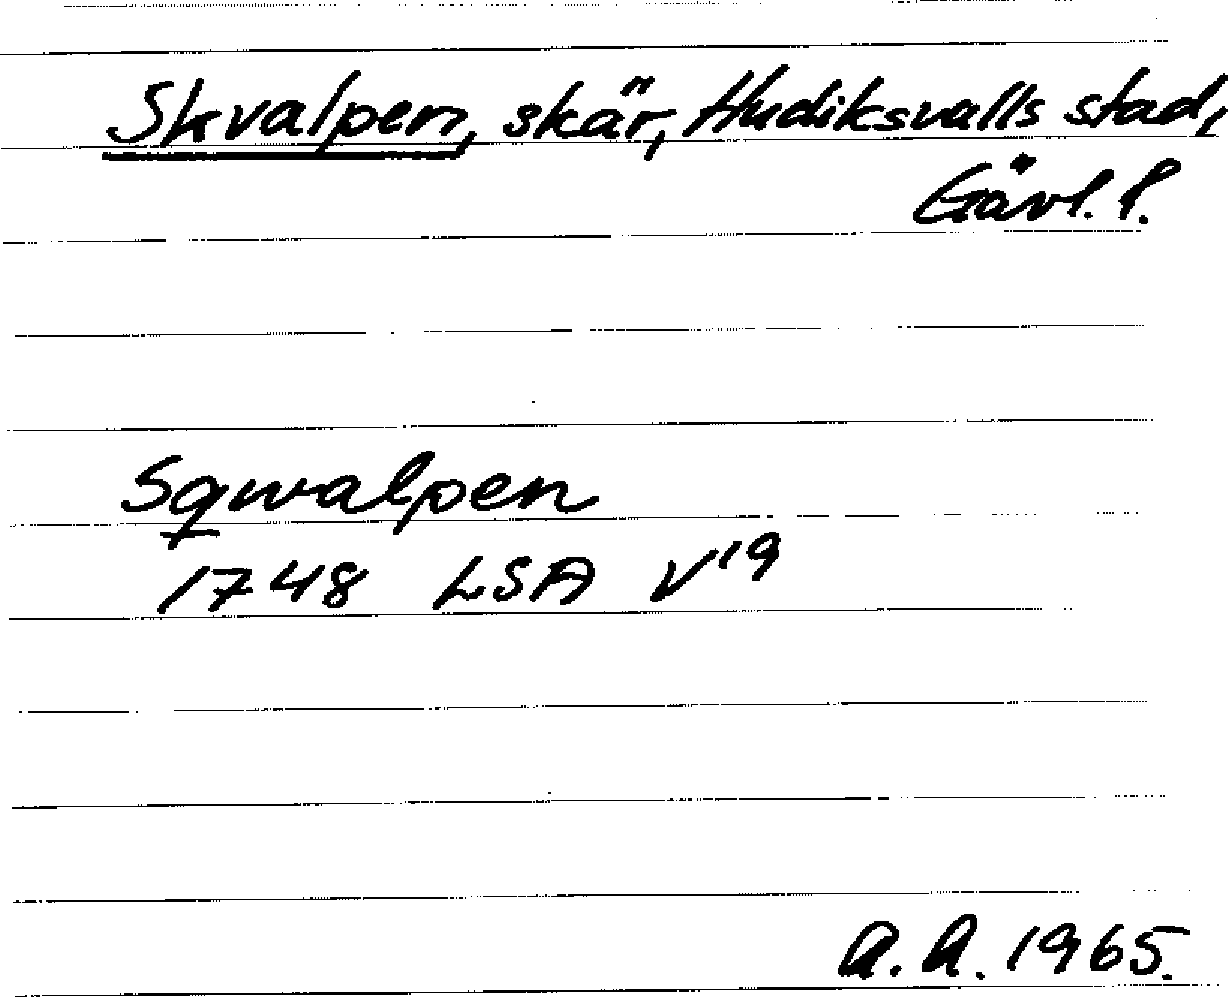 Skvalpen, skär, Hudiksvalls stad,
Gävl. l.
Sqwalpen
1748 LSA V¹⁹
A.A. 1965.